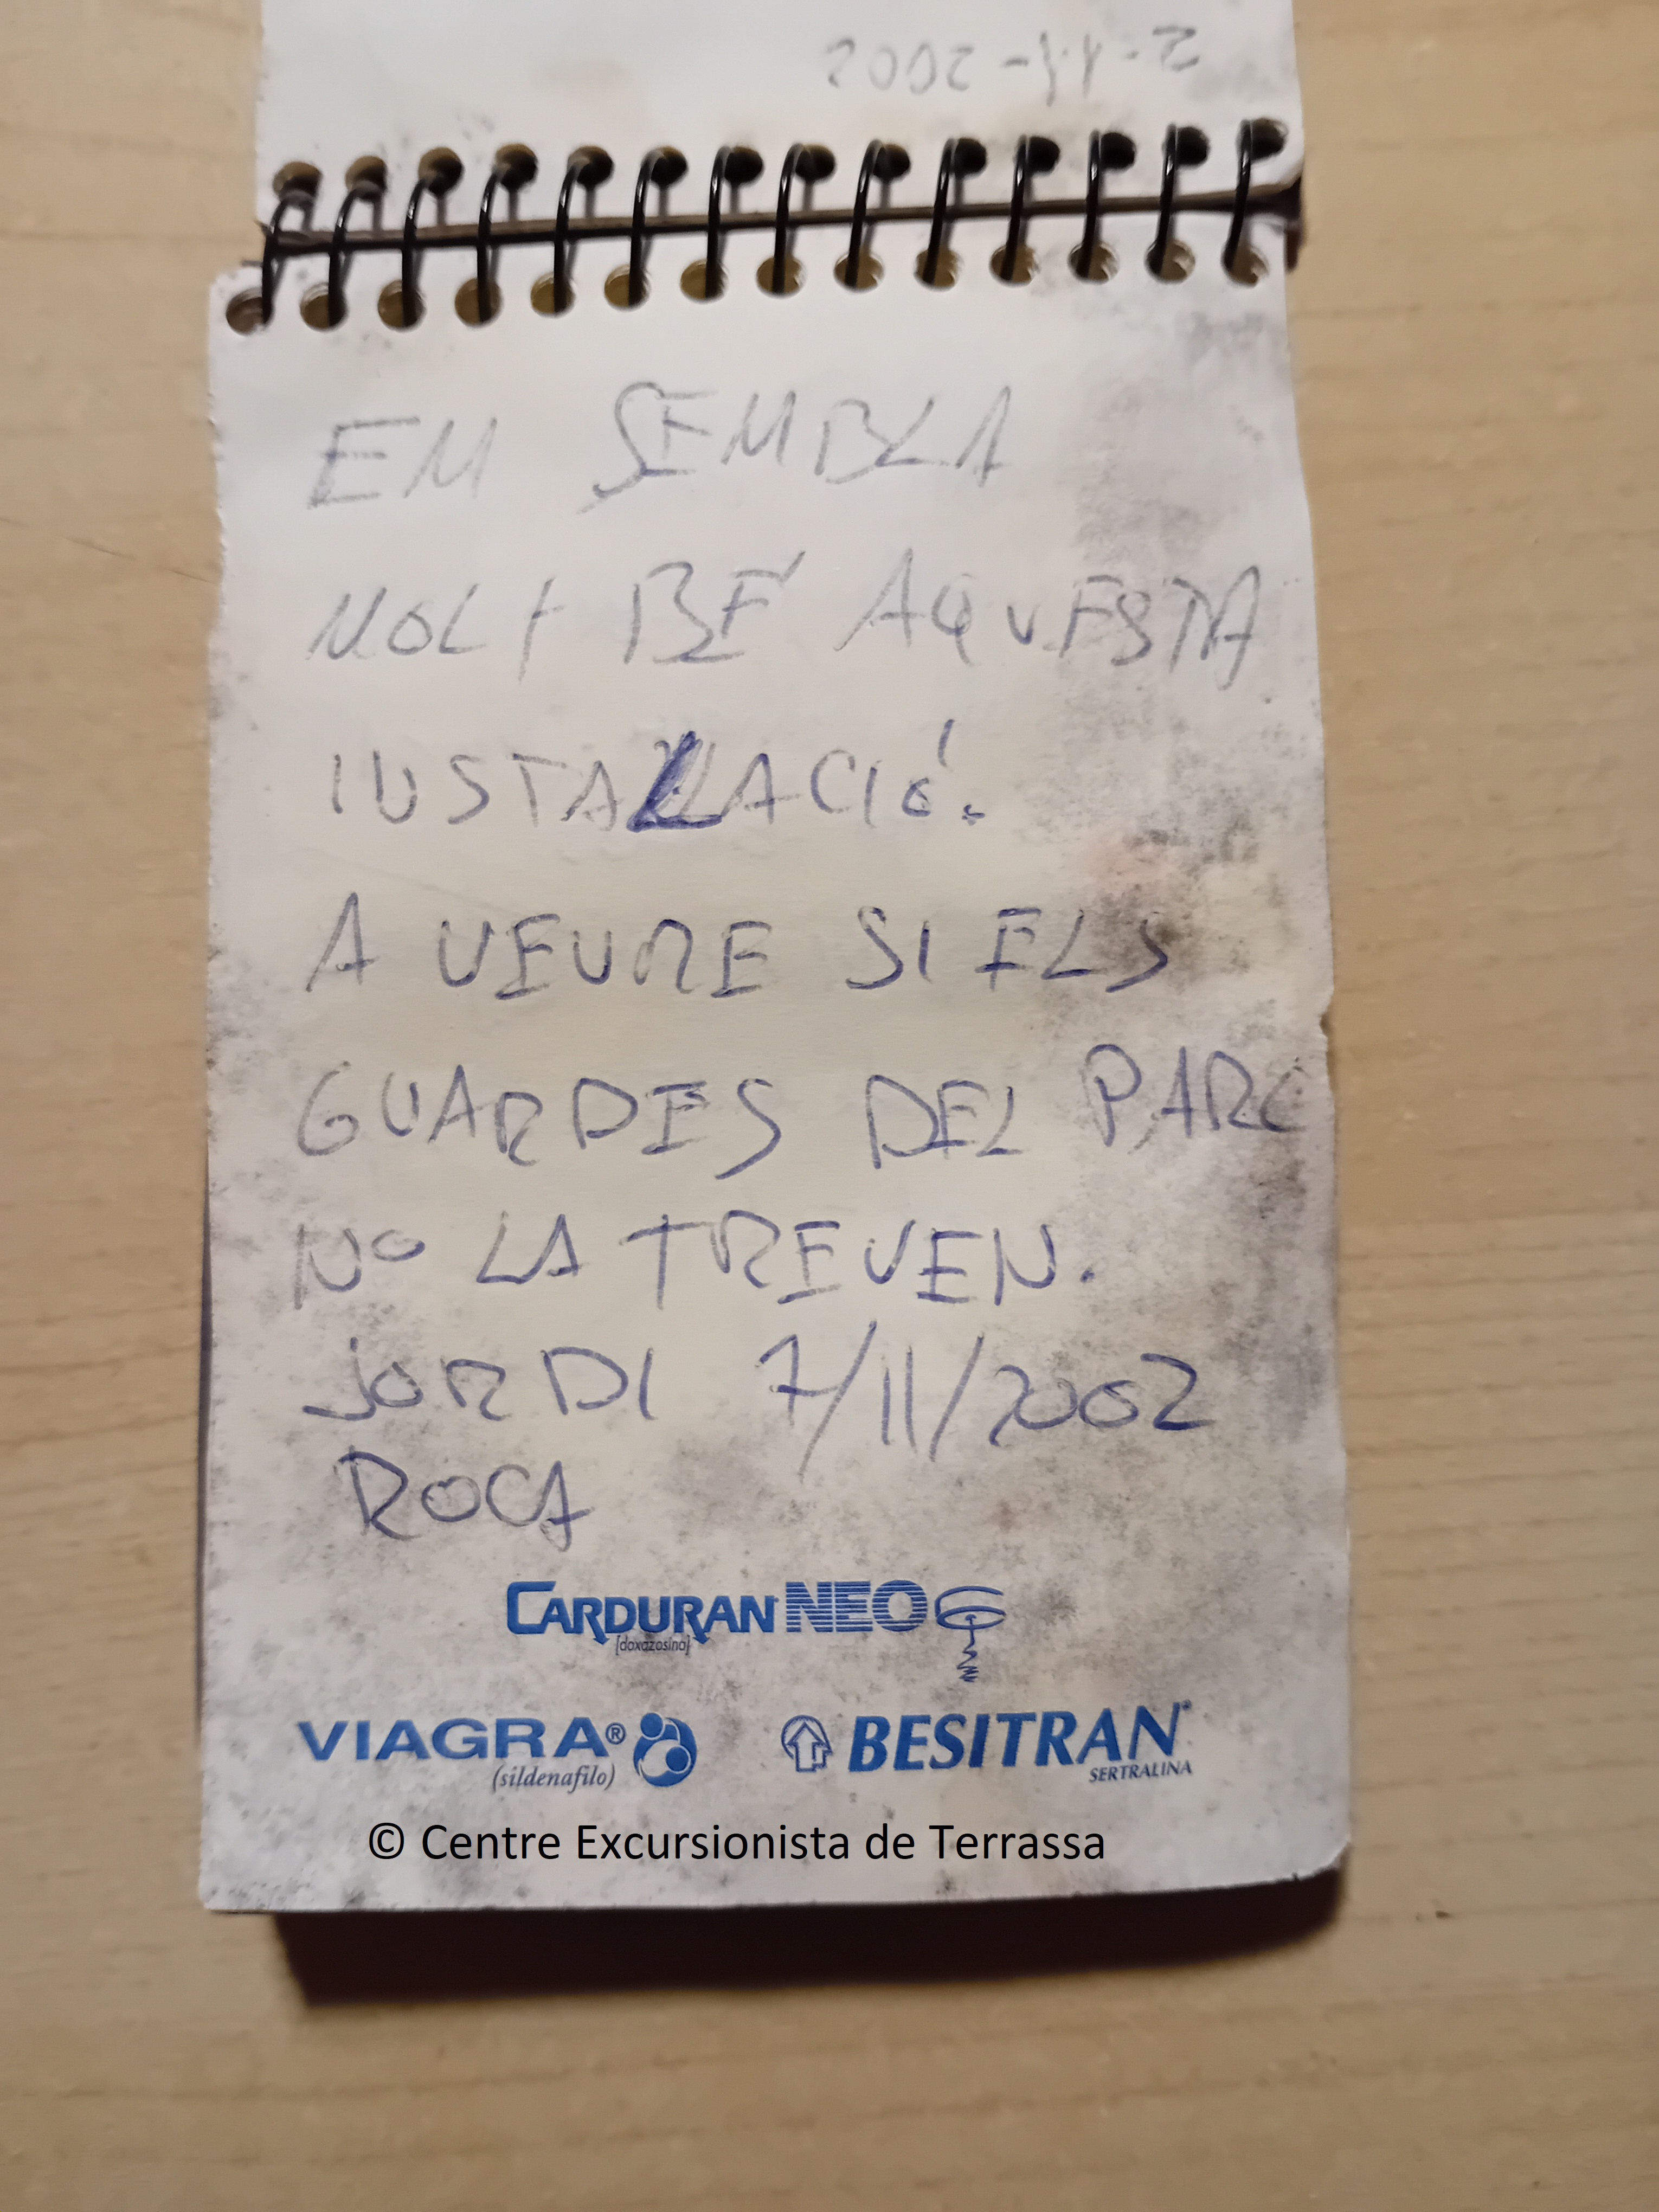 2-11-2002
EM SEMBLA
MOLT BÉ AQUESTA
INSTALLACIÓ.
A VEURE SI ELS
GUARDES DEL PARC
NO LA TREUEN.
JORDI 7/11/2002
ROCA
CARDURAN NEO
[doxazosina]
VIAGRA® BESITRAN®
(sildenafilo) SERTRALINA
© Centre Excursionista de Terrassa